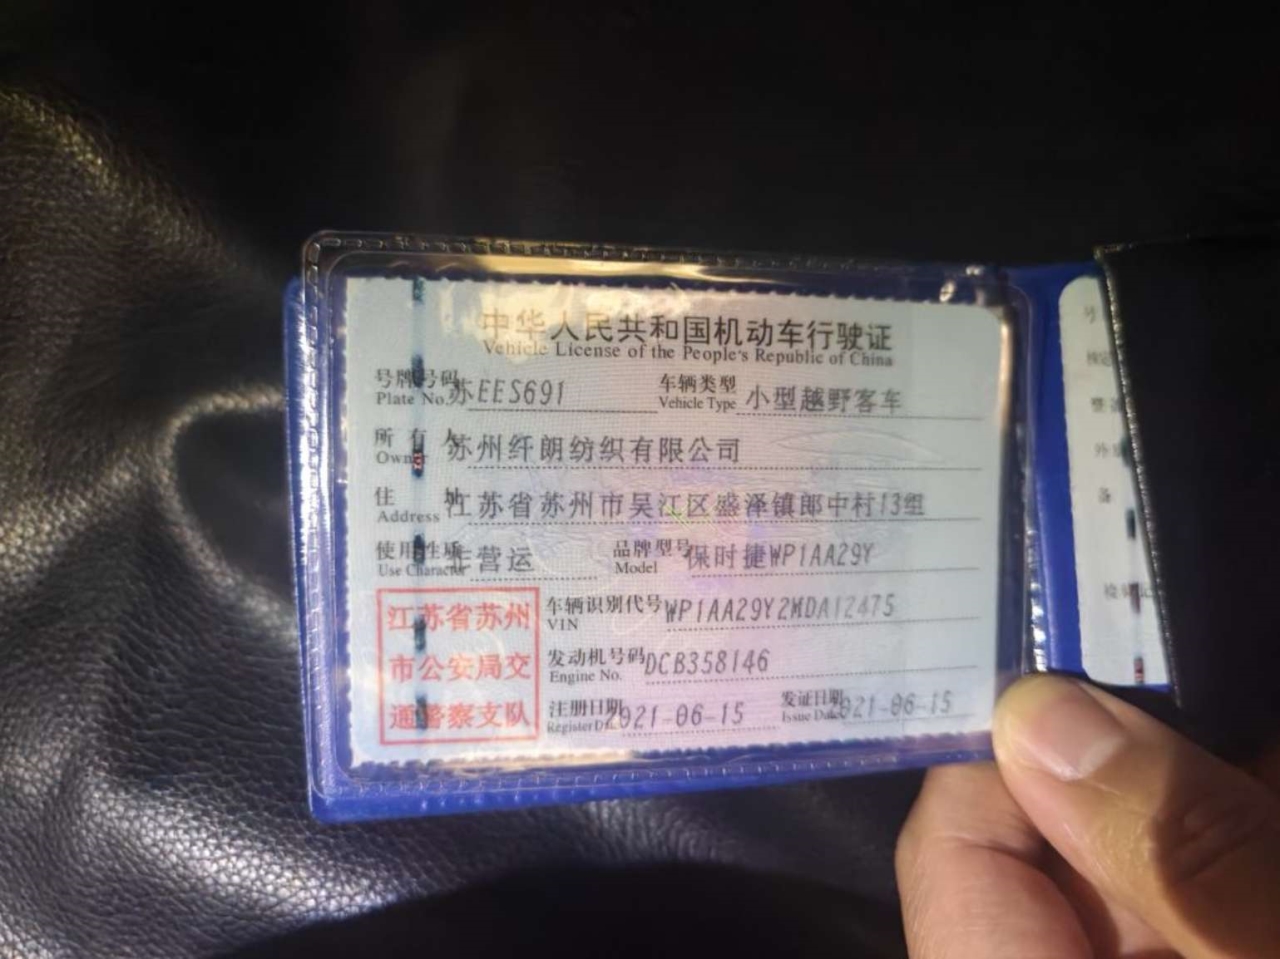 中华人民共和国机动车行驶证
Vehicle License of the People's Republic of China
号牌号码 苏EES691 车辆类型 小型越野客车
Plate No. Vehicle Type
所有人 苏州纤朗纺织有限公司
Owner
住址 江苏省苏州市吴江区盛泽镇郎中村13组
Address
使用性质 非营运 品牌型号 保时捷WP1AA29Y
Use Character Model
江苏省苏州
市公安局交
通警察支队
车辆识别代号 WP1AA29Y2MDA12475
VIN
发动机号码 DCB358146
Engine No.
注册日期 2021-06-15 发证日期 2021-06-15
Register Date Issue Date
号
备